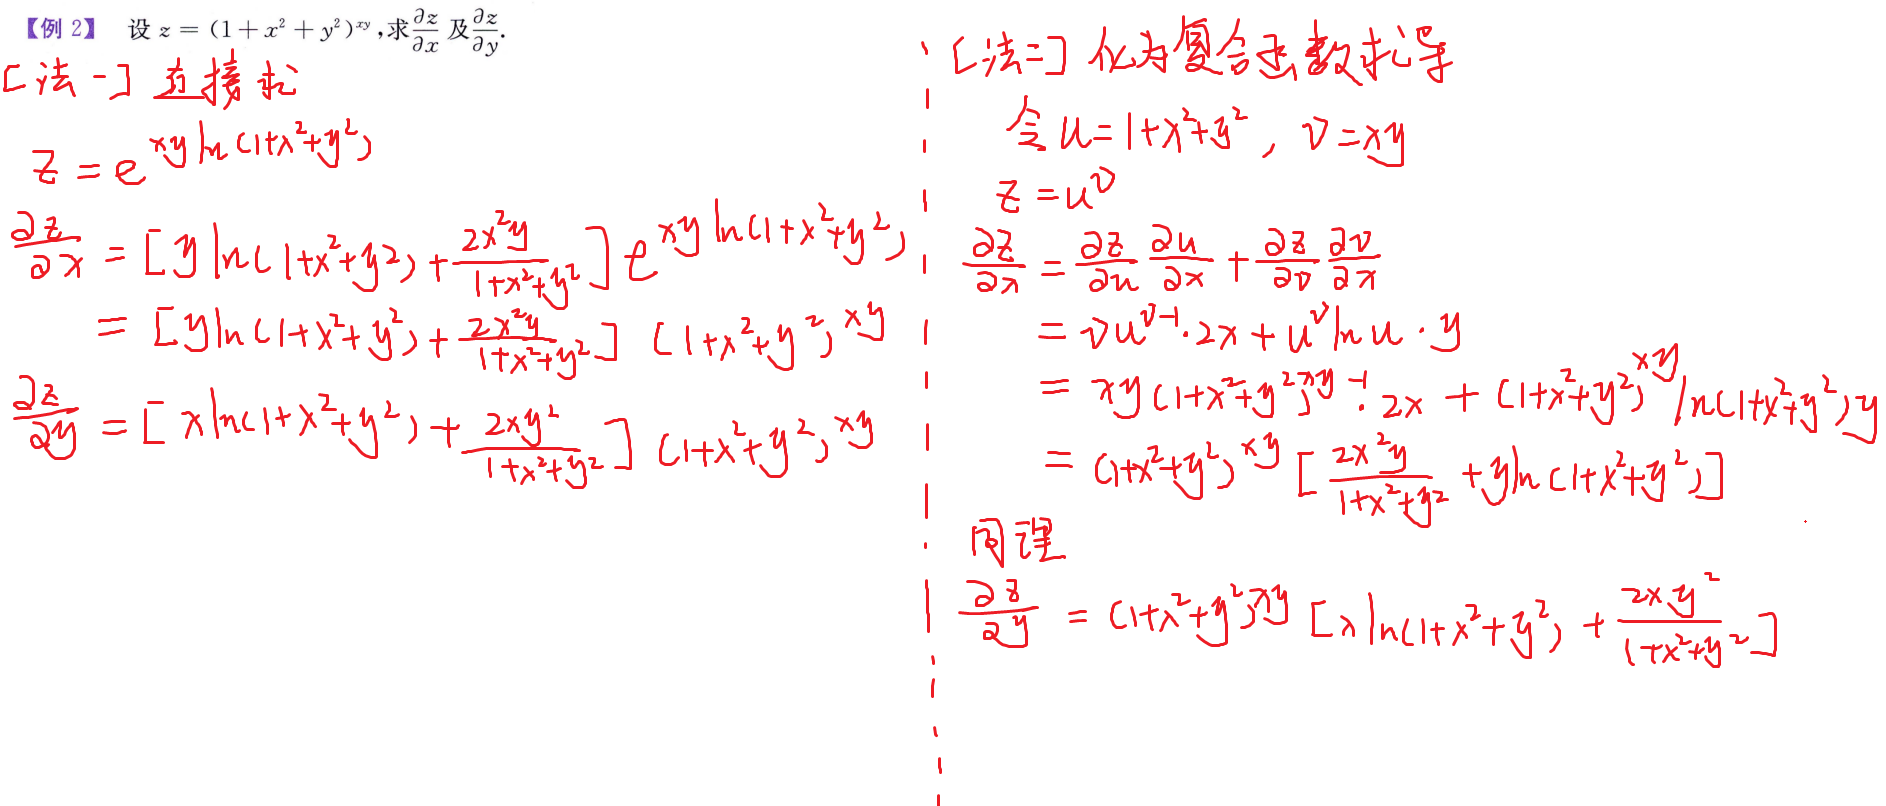 【例 2】 设 z = (1 + x² + y²)^{xy}, 求 ∂z/∂x 及 ∂z/∂y.
[法一] 直接求
z = e^{xy ln(1+x²+y²)}
∂z/∂x = [y ln(1+x²+y²) + 2x²y/(1+x²+y²)] e^{xy ln(1+x²+y²)}
= [y ln(1+x²+y²) + 2x²y/(1+x²+y²)] (1+x²+y²)^{xy}
∂z/∂y = [x ln(1+x²+y²) + 2xy²/(1+x²+y²)] (1+x²+y²)^{xy}
[法二] 化为复合函数求导
令 u = 1+x²+y², v = xy
z = u^v
∂z/∂x = ∂z/∂u ∂u/∂x + ∂z/∂v ∂v/∂x
= v u^{v-1}·2x + u^v ln u · y
= xy(1+x²+y²)^{xy-1}·2x + (1+x²+y²)^{xy} ln(1+x²+y²) y
= (1+x²+y²)^{xy} [2x²y/(1+x²+y²) + y ln(1+x²+y²)]
同理
∂z/∂y = (1+x²+y²)^{xy} [x ln(1+x²+y²) + 2xy²/(1+x²+y²)]